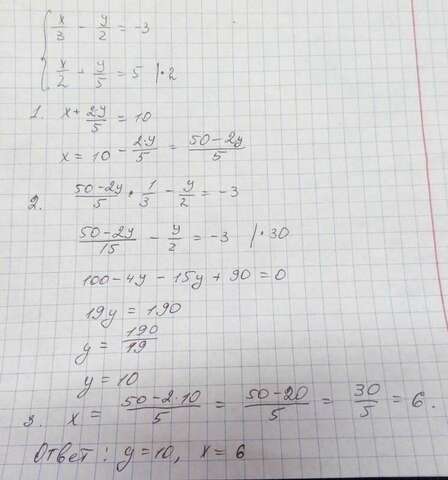 x/3 - y/2 = -3
x/2 + y/5 = 5 |·2
1. x + 2y/5 = 10
x = 10 - 2y/5 = 50-2y/5
2. 50-2y/5 · 1/3 - y/2 = -3
50-2y/15 - y/2 = -3 |·30
100-4y - 15y + 90 = 0
19y = 190
y = 190/19
y = 10
3. x = 50-2·10/5 = 50-20/5 = 30/5 = 6.
Ответ: y=10, x=6